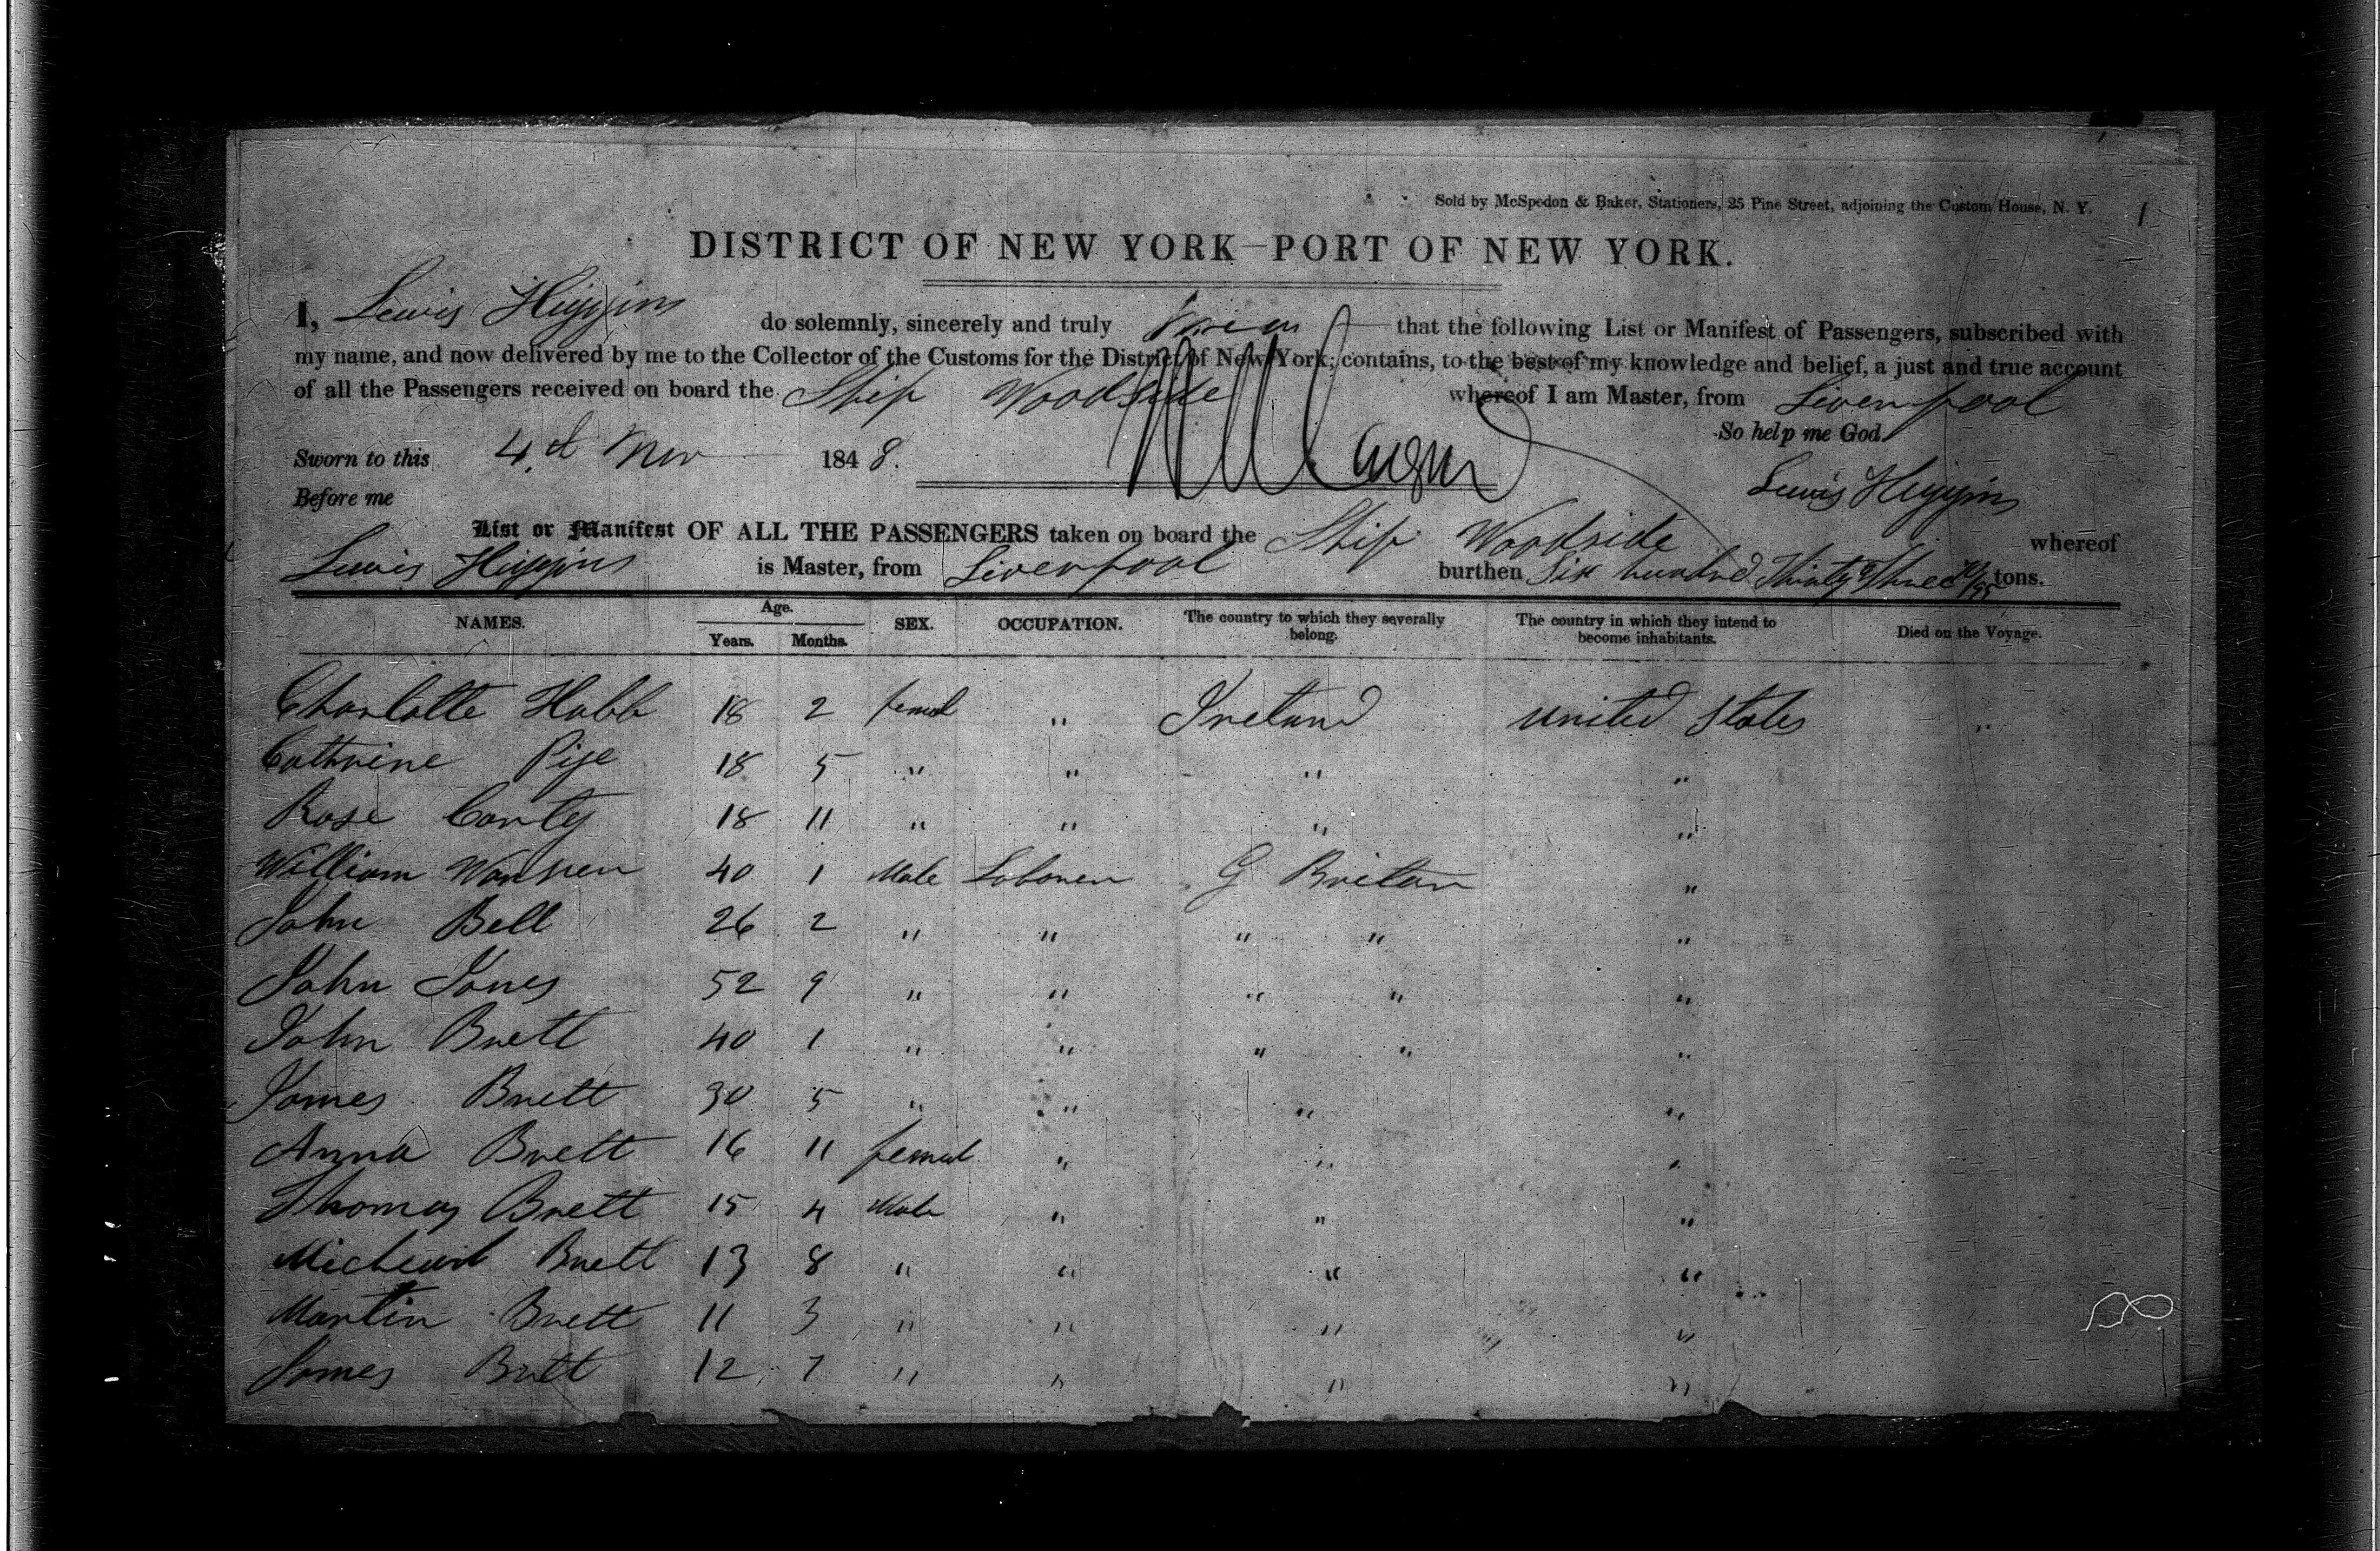 Sold by McSpedon & Baker, Stationers, 25 Pine Street, adjoining the Custom House, N. Y. 1
DISTRICT OF NEW YORK—PORT OF NEW YORK.
I, Lewis Higgins do solemnly, sincerely and truly that the following List or Manifest of Passengers, subscribed with
my name, and now delivered by me to the Collector of the Customs for the District of New York, contains, to the best of my knowledge and belief, a just and true account
of all the Passengers received on board the Ship Woodside whereof I am Master, from Liverpool
So help me God.
Sworn to this 4 Nov 1848.
Lewis Higgins
Before me
List or Manifest OF ALL THE PASSENGERS taken on board the Ship Woodside whereof
Lewis Higgins is Master, from Liverpool burthen Six hundred Thirty Three tons.
NAMES. Age. Years. Months. SEX. OCCUPATION. The country to which they severally belong. The country in which they intend to become inhabitants. Died on the Voyage.
Charlotte Habb 18 2 femal " Ireland united States "
Cathrine 18 5 " " " "
Rose Conty 18 11 " " " "
William 40 1 Male Laborer G Britan "
John Bell 26 2 " " " " "
John Jones 52 9 " " " " "
John Brett 40 1 " " " " "
James Brett 30 5 " " " "
Anna Brett 16 11 femal " " "
Thomas Brett 15 4 Male " " "
Brett 13 8 " " " "
Martin Brett 11 3 " " " "
James Brett 12 7 " " " "